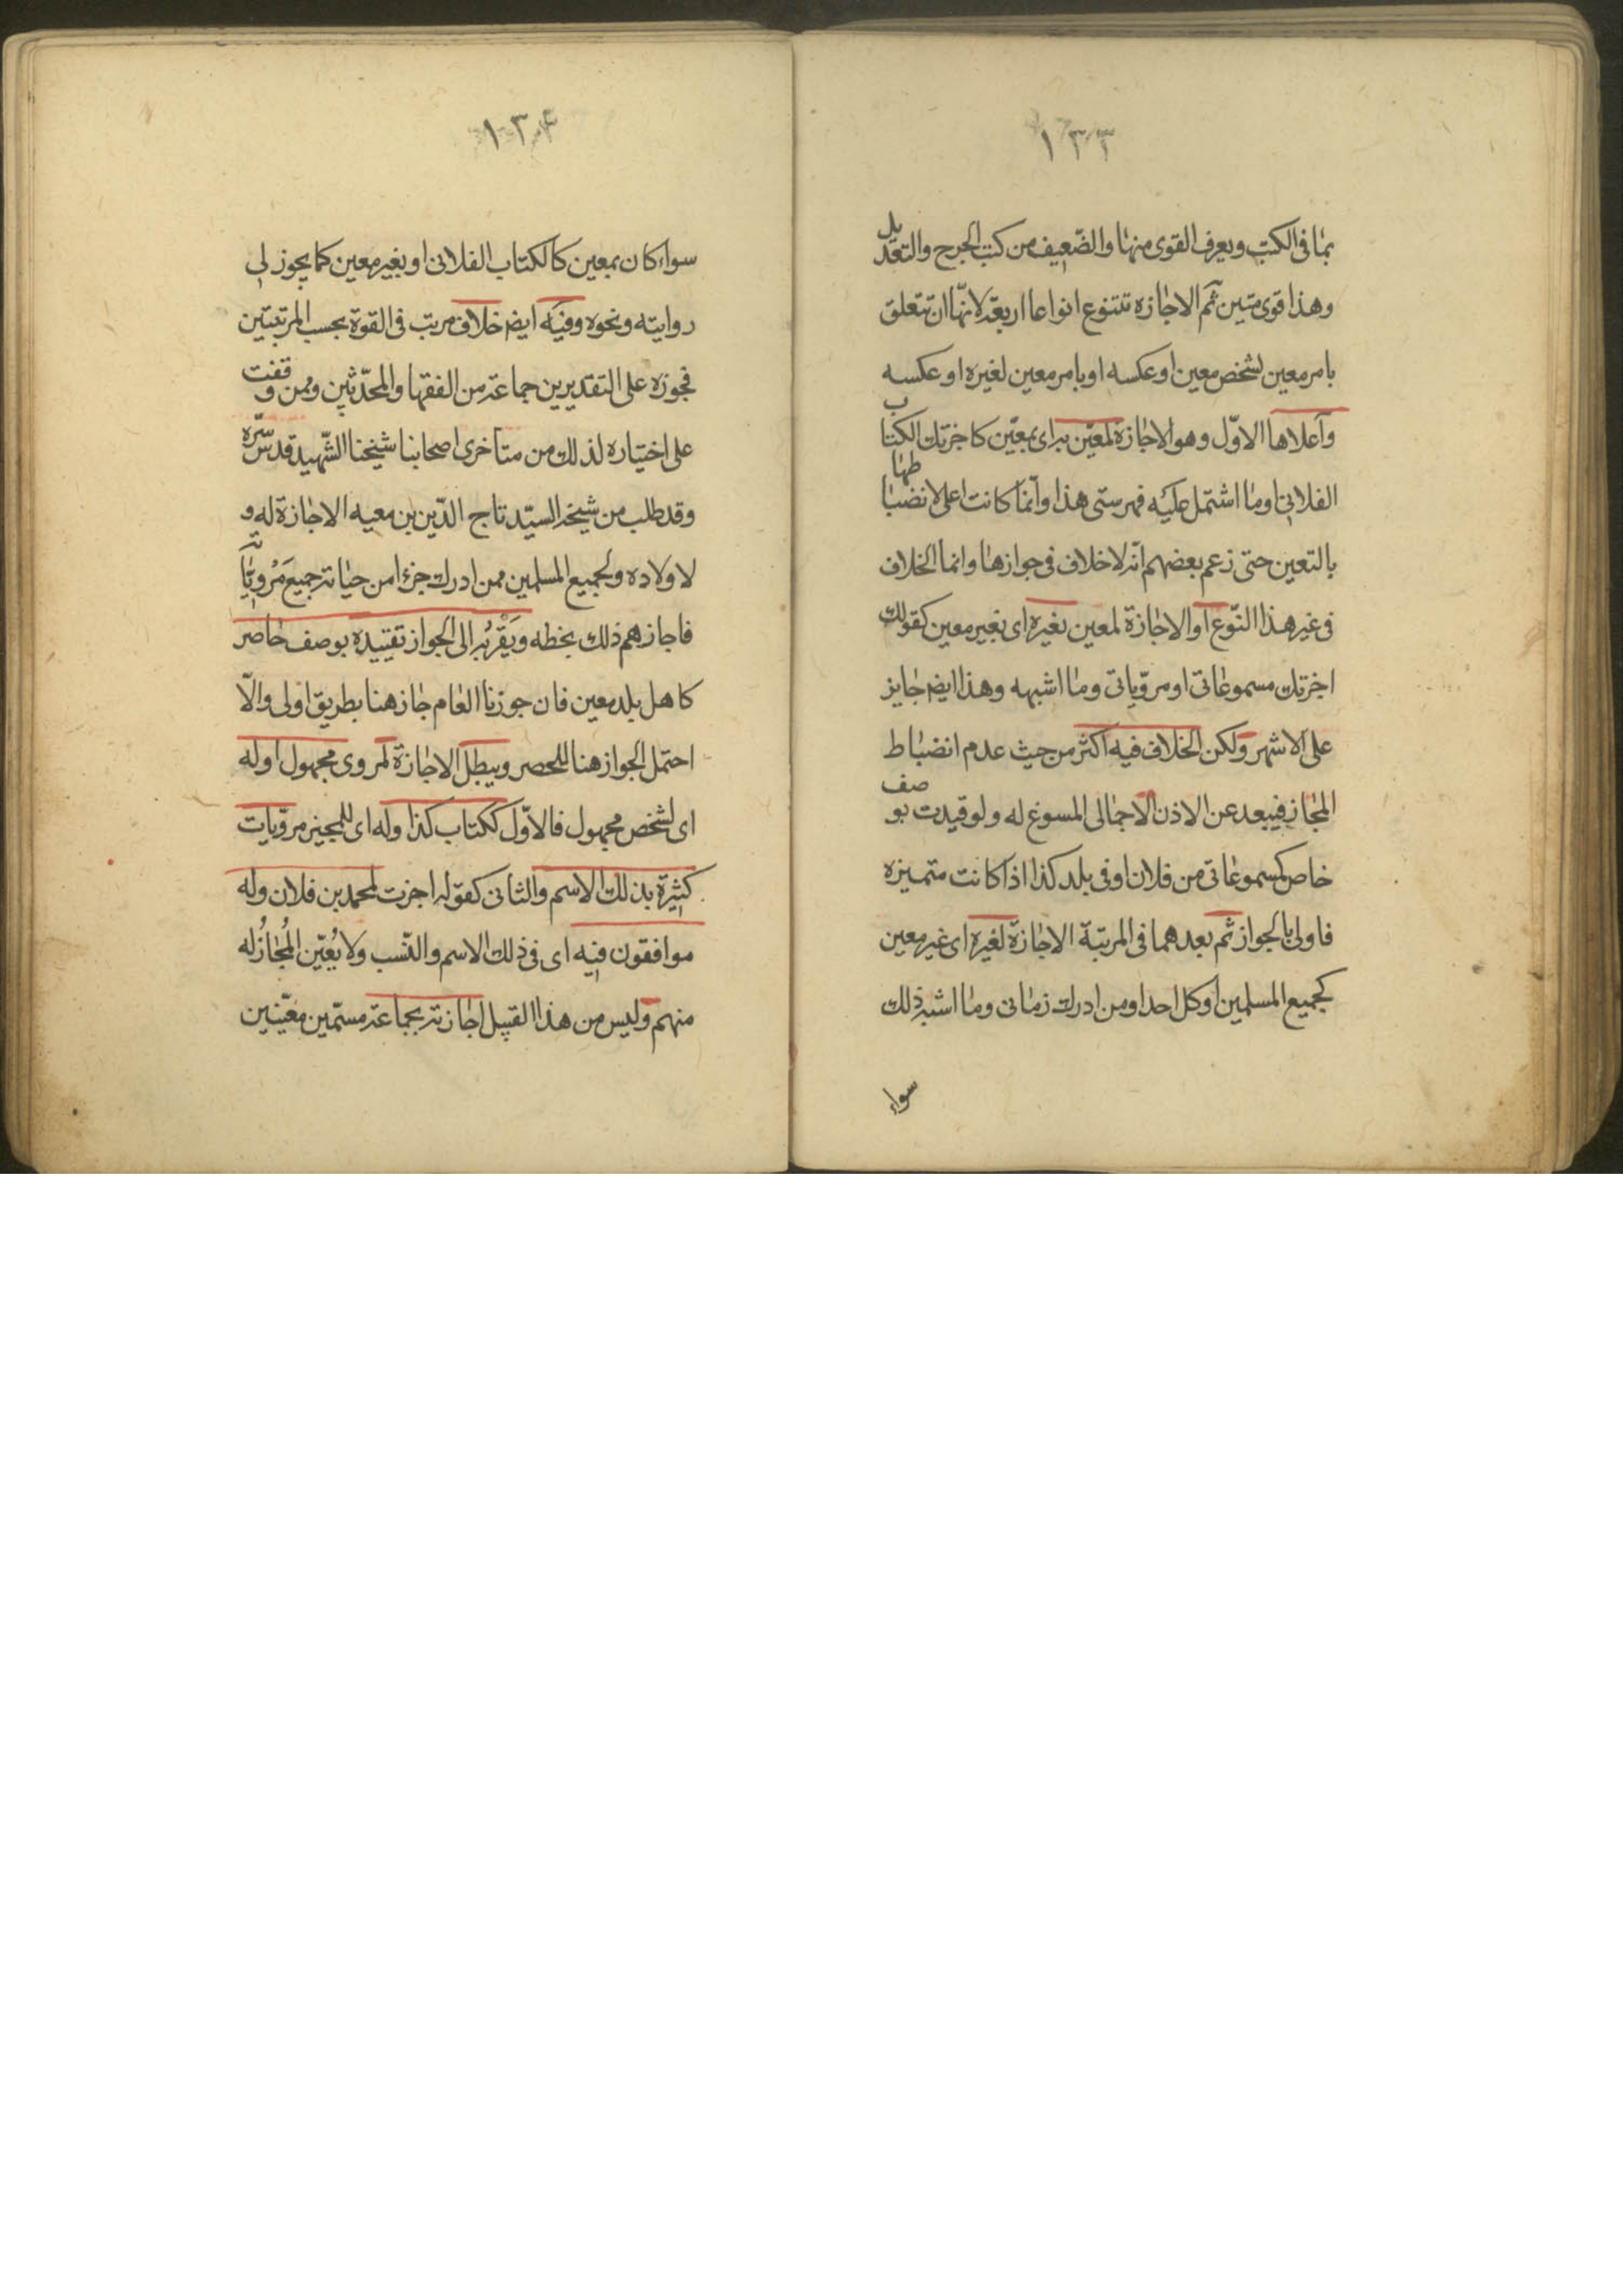 ١٣٣
بما فى الكتب ويعرف القوى منها والضّعيف من كتب الجرح والتعديل
وهذا قوى متين ثم الاجازه تتنوع انواعا اربعة لانّها ان تتعلق
بامر معين لشخص معين او عكسه او بامر معين لغيره او عكسه
وآعلاها الاوّل وهو الاجازة لمعيّن به اى بمعيّن كاجزتك الكتاب
الفلانى او ما اشتمل عليه فهرستى هذا وانّما كانت اعلى لانضباطها
بالتعين حتى زعم بعضهم انه لا خلاف فى جوازها وانما الخلاف
فى غير هذا النّوع او الاجازة لمعين بغيره اى بغير معين كقولك
اجزتك مسموعاتى او مرويّاتى وما اشبهه وهذا ايض جايز
على الاشهر ولكن الخلاف فيه اكثر من حيث عدم انضباط
المجاز فيبعد عن الاذن الاجمالى المسوغ له ولو قيدت بوصف
خاص كمسموعاتى من فلان او فى بلد كذا اذا كانت متميزه
فاولى بالجواز ثم بعدهما فى المرتبة الاجازة لغيره اى غير معين
كجميع المسلمين او كل احد او من ادرك زمانى وما اشبه ذلك
سواء
١٣۴
سواء كان بمعين كالكتاب الفلانى او بغير معين كما يجوز لى
روايته ونحوه وفيه ايض خلاف مرتب فى القوة بحسب المرتبتين
فجوزه على التقديرين جماعة من الفقها والمحدّثين وممن وقفت
على اختياره لذلك من متاخرى اصحابنا شيخنا الشّهيد قدس سرّه
وقد طلب من شيخه السيّد تاج الدّين بن معيه الاجازة له و
لاولاده ولجميع المسلمين ممن ادرك جزءا من حياته جميع مرويّاته
فاجازهم ذلك بخطه ويقربه الى الجواز تقييده بوصف خاصر
كاهل بلد معين فان جوزنا العام جاز هنا بطريق اولى والّا
احتمل الجواز هنا للحصر ويبطل الاجازة لمروى مجهول اوله
اى لشخص مجهول فالاوّل ككتاب كذا وله اى للمجيز مرويّات
كثيرة بذلك الاسم والثانى كقوله اجزت لمحمد بن فلان وله
موافقون فيه اى فى ذلك الاسم والنّسب ولا يُعيّن المُجازُ له
منهم وليس من هذا القبيل اجازته بجماعة مسمّين معيّنين